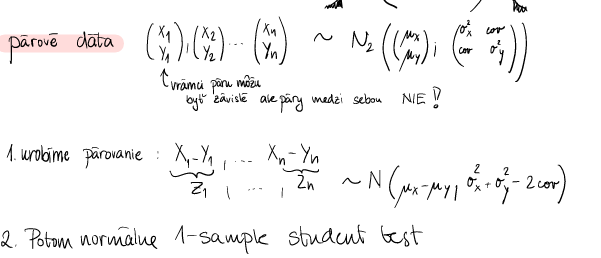 párové dáta (X₁ Y₁), (X₂ Y₂) ... (Xₙ Yₙ) ~ N₂((μₓ μᵧ); (σₓ² cov cov σᵧ²))
vrámci páru môžu
byť závislé ale páry medzi sebou NIE!
1. urobíme párovanie : X₁-Y₁, ... Xₙ-Yₙ
Z₁, ... , Zₙ ~ N(μₓ-μᵧ, σₓ²+σᵧ²-2cov)
2. Potom normálne 1-sample student test